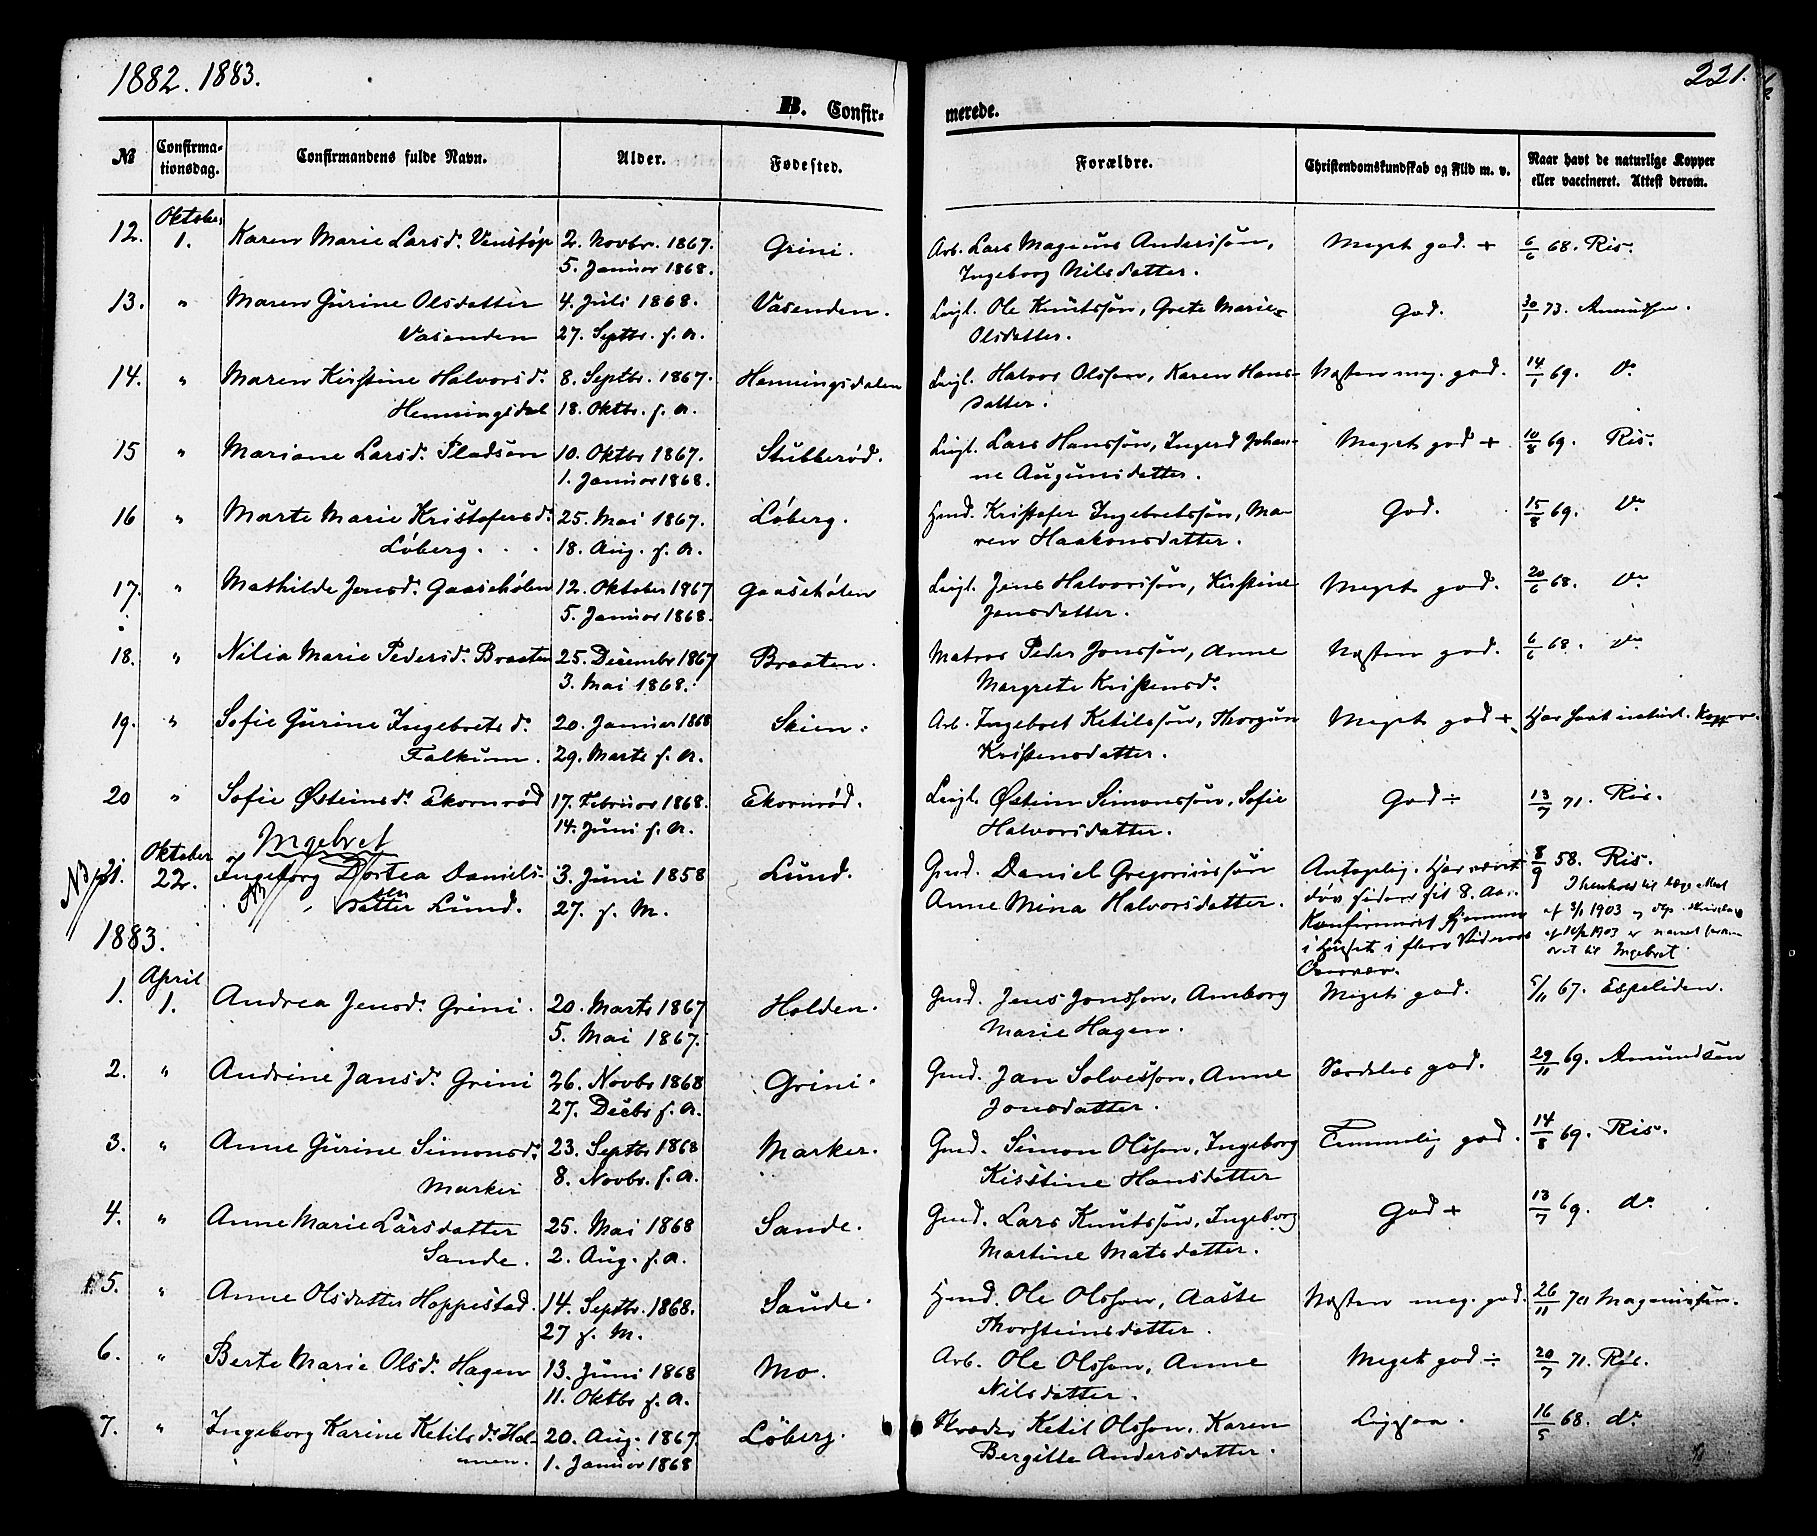 1882. 1883.
221.
B. Confir-
merede.
№ Confirma-tionsdag. Confirmandens fulde Navn. Alder. Fødested. Forældre. Christendomskundskab og Flid m. v. Naar havt de naturlige Kopper eller vaccineret. Attest derom.
Oktober
12. 1. Karen Marie Larsd. Venstøp 2. Novbr. 1867. Grini. Arb. Lars Magnus Anderssøn, Meget god. + 6/6 68. Ris.
5. Januar 1868. Ingeborg Nilsdatter.
13. " Maren Gurine Olsdatter 4. Juli 1868. Vasenden. Leigl. Ole Knutssøn, Grete Marie God. 30/1 73. Amundsen.
Vasenden 27. Septbr. f. A. Olsdatter.
14. " Maren Kirstine Halvorsd. 8. Septbr. 1867. Henningsdalen Leigl. Halvor Olsson, Karen Hans- Næsten meg. god. 14/1 69. Do
Henningsdal 18. Oktbr. f. A. datter.
15 " Mariane Larsd. Pladsen 10. Oktbr 1867. Stubberød. Leigl. Lars Hanssøn, Ingerd Johan- Meget god + 10/8 69. Ris.
1. Januar 1868. ne Augunsdatter.
16 " Marte Marie Kristofersd. 25. Mai 1867. Løberg. Gmd. Kristofer Ingebretssøn, Ma- God. 15/8 69. Do
Løberg. 18. Aug. f. A. ren Haakonsdatter.
17. " Mathilde Jensd. Gaasehølen 12. Oktober 1867 Gaasehølen Leigl. Jens Halvorssøn, Kirstine Meget god. 20/6 68. Do
5. Januar 1868. Jensdatter.
18. " Nilia Marie Pedersd. Braaten 25. Decembr 1867 Braaten. Matros Peder Jonssøn, Anne Næsten god. 6/6 68. Do
3. Mai 1868. Margrete Kristensd.
19. " Sofie Gurine Ingebretsd. 20. Januar 1868 Skien. Arb. Ingebret Ketilssøn, Thorgun Meget god + Har havt naturl. Kopper.
Falkum. 29. Marts f. A. Kristensdatter.
20 " Sofie Østeinsd. Ekornrød 17. Februar 1868. Ekornrød. Leigl. Østein Simonssøn, Sofie God ÷ 13/7 71. Ris.
14. Juni f. A. Halvorsdatter.
Ingebret
Oktober
NB 21. 22. Ingeborg Dortea Daniels- 3. Juni 1858 Lund. Gmd. Daniel Gregoriussøn Antagelig. Har været 8/9 58. Ris.
NB datter Lund. 27. f. M. Anne Mina Halvorsdatter. døv siden sit 8. Aar. I henhold til læge Attest
Konfirmeret hjemme af 3/1 1903
i Huset i flere Vidners 1903 er navnet foran-
Overvær. dret til Ingebret
1883.
April
1. 1. Andrea Jensd. Grini. 20. Marts 1867 Holden. Gmd. Jens Jonssøn, Amborg Meget god. 5/11 67. Espeliden.
5. Mai 1867. Marie Hagen.
2. " Andrine Jansd. Grini 26. Novbr 1868 Grini. Gmd. Jan Solvessøn, Anne Særdeles god. 29/11 69. Amundsøn
27. Decbr f. A. Jonsdatter.
3. " Anne Gurine Simonsd. 23. Septbr 1868 Marker. Gmd. Simon Olsson, Ingeborg Temmelig god. 14/8 69. Ris.
Marker 8. Novbr. f. A. Kisstine Hansdatter
4. " Anne Marie Larsdatter 25. Mai 1868 Sande. Gmd. Lars Knutssøn, Ingeborg God + 13/7 69. do
Sande. 2. Aug. f. A. Martine Matsdatter.
5. " Anne Olsdatter Hoppestad. 14. Septbr. 1868. Saude. Gmd. Ole Olsson, Aaste Næsten meg. god. 26/11 70 Magnussøn.
27 f. M. Thorsteinsdatter.
6. " Berte Marie Olsd. Hagen 13. Juni 1868 Mo. Arb. Ole Olsson, Anne Meget god ÷ 20/7 71. Ris.
11. Oktbr f. A. Nilsdatter.
7. " Ingeborg Karine Ketilsd. Hol- 20. Aug. 1867 Løberg. Skræder Ketil Olsson, Karen Ligesaa. 16/5 68. do
men. 1. Januar 1868 Bergitte Andersdatter.